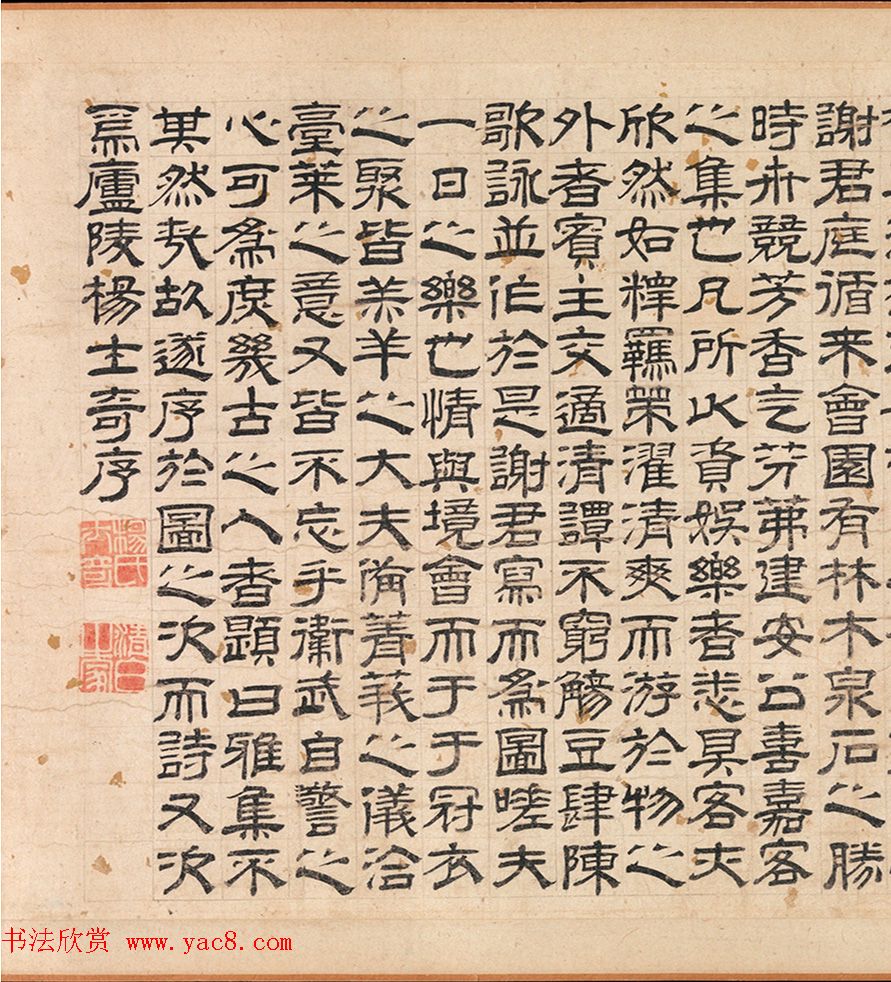 謝君庭循来會園有林木泉石之勝
時卉競芳香气芬茀建安公喜嘉客
之集也凡所以資娛樂者悉具客亦
欣然如釋羈策濯清爽而游於物之
外者賓主交適清譚不窮觴豆肆陳
歌詠並作於是謝君寫而為圖嗟夫
一日之樂也情與境會而于于冠衣
之聚皆羔羊之大夫備菁莪之儀洽
臺萊之意又皆不忘乎衛武自警之
心可為庶幾古之人者題曰雅集不
其然哉故遂序於圖之次而詩又次
焉廬陵楊士奇序
书法欣赏 www.yac8.com